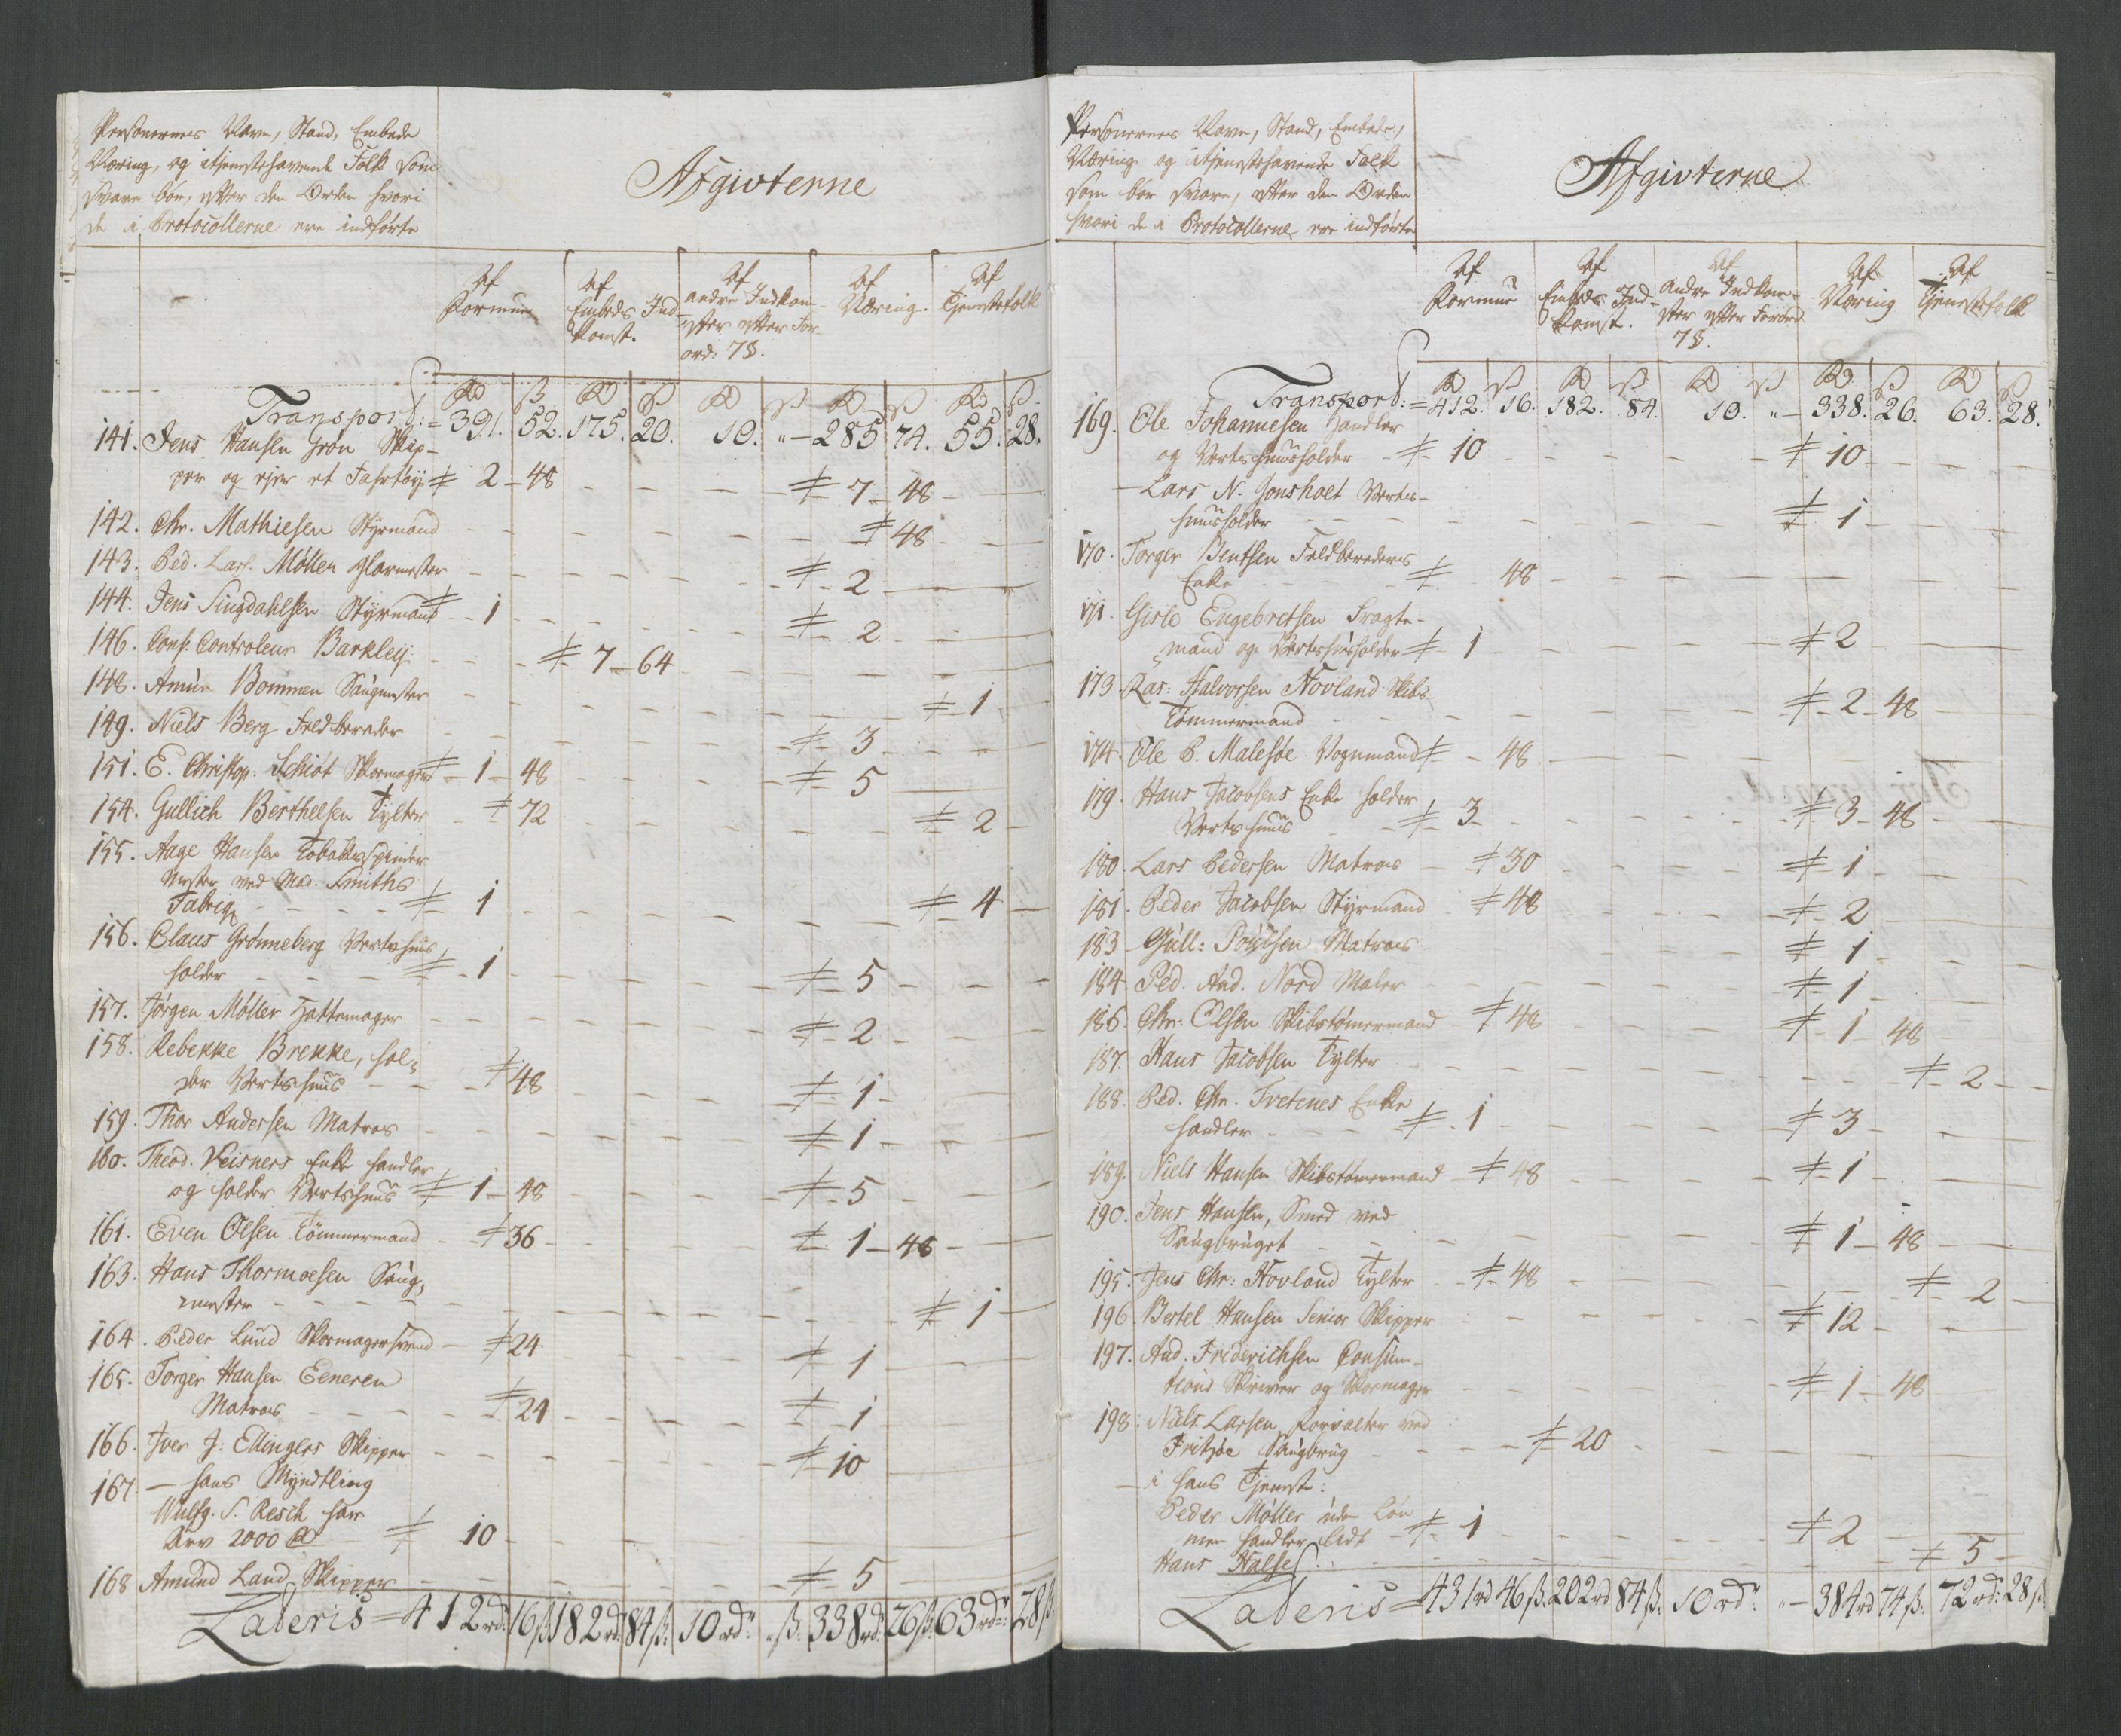 Personernes Navn, Stand, Embede
Næring, og itjenestehavende Folk som
svare bør, efter den Orden hvori
de i Protocollerne ere indførte
Afgivterne
Af Formue
Af Embeds Ind-komst.
Af andre Indkom-ster efter For-ord: 7 §.
Af Næring.
Af Tjenestefolk
Rd ß Rd ß Rd ß Rd ß Rd ß
Transport: = 391. 52. 175. 20. 10. " – 285 74. 55. 28.
141. Jens Hansen Grøn Skip-
per og ejer et Fahrtøy 2 – 48 7 – 48
142. Chr. Mathiesen Styrmand 48
143. Ped. Lars. Møller Glarmester 2
144. Jens Lingdahlsen Styrmand 1 2
146. Cons. Controleur Barkley 7 – 64
148. Amun Bommen Saugmester 1
149. Niels Berg Feldbereder 3
151. E. Christop: Schiøt Skomager 1 – 48 5
154. Gullich Berthelsen Tylter 72 2
155. Aage Hansen Tobakspinder
Mester ved Mad. Smiths
Fabriq 1 4
156. Claus Grønneberg Vertshuus
holder 1 5
157. Jørgen Møller Hattemager 2
158. Rebekke Brekke, hol-
der Vertshuus 48 1
159. Thor Andersen Matros 1
160. Theod. Veisners Enke handler
og holder Vertshuus 1 – 48 5
161. Even Olsen Tømmermand 36 1 – 48
163. Hans Thormoesen Saug-
mester 1
164. Peder Lund Skomagersvend 24 1
165. Torger Hansen Eeneren
Matros 24 1
166. Iver J: Ellingers Skipper 10
167. – hans Myndtling
Wulfg. S. Resch har
Arv 2000 Rd 10
168 Amund Land Skipper 5
Lateris = 412 rd: 16 ß 182 rd: 84 ß: 10 rd: " ß: 338 rd: 26 ß: 63 rd: 28 ß.
Personernes Navn, Stand, Embede,
Næring og itjenestehavende Folk
som bør svare, efter den Orden
hvori de i Protocollerne ere indførte
Afgivterne
Af Formue
Af Embeds Ind-komst.
Af Andre Indkom-ster efter Forord 7 §.
Af Næring
Af Tjenestefolk
Rd ß Rd ß Rd ß Rd ß Rd ß
Transport: = 412. 16. 182. 84. 10. " – 338. 26. 63. 28.
169. Ole Johannesen Handler
og Vertshuusholder 10 10
– Lars N. Gonsholt Verts-
huusholder 1
170. Torger Bentsen Feldbereders
Enke 48
171. Gisle Engebretsen Fragte-
mand og Vertshusholder 1 2
173. Ras: Halvorsen Hovland Skibs
Tømmermand 2 – 48
174. Ole B. Malesøe Vognmand 48
179. Hans Jacobsens Enke holder
Vertshuus 3 3 – 48
180. Lars Pedersen Matros 30 1
181. Peder Jacobsen Styrmand 48 2
183 – Gull: Poulsen Matros 1
184. Ped. And. Nord Maler 1
186. Chr: Olsen Skibstømermand 48 1 48
187. Hans Jacobsen Tylter 2
188. Ped. Chr. Tvetenes Enke
handler 1 3
189. Niels Hansen Skibstømermand 48 1
190. Jens Hansen, Smed ved
Saugbruget 1 – 48
195. Jens Chr: Hovland Tylter 48 2
196. Bertel Hansen Senior Skipper 12
197. And. Friderichsen Consum-
tions Skriver og Skomager 1 – 48
198. Niels Larsen Forvalter ved
Fritzøe Saugbrug 20
– i hans Tjeneste:
Peder Møller uden Løn
men handler lidt 1 2
Hans Halse 5
Lateris = 431 rd 46 ß. 202 rd 84 ß: 10 rd: " – 384 rd 74 ß: 72 rd: 28 ß